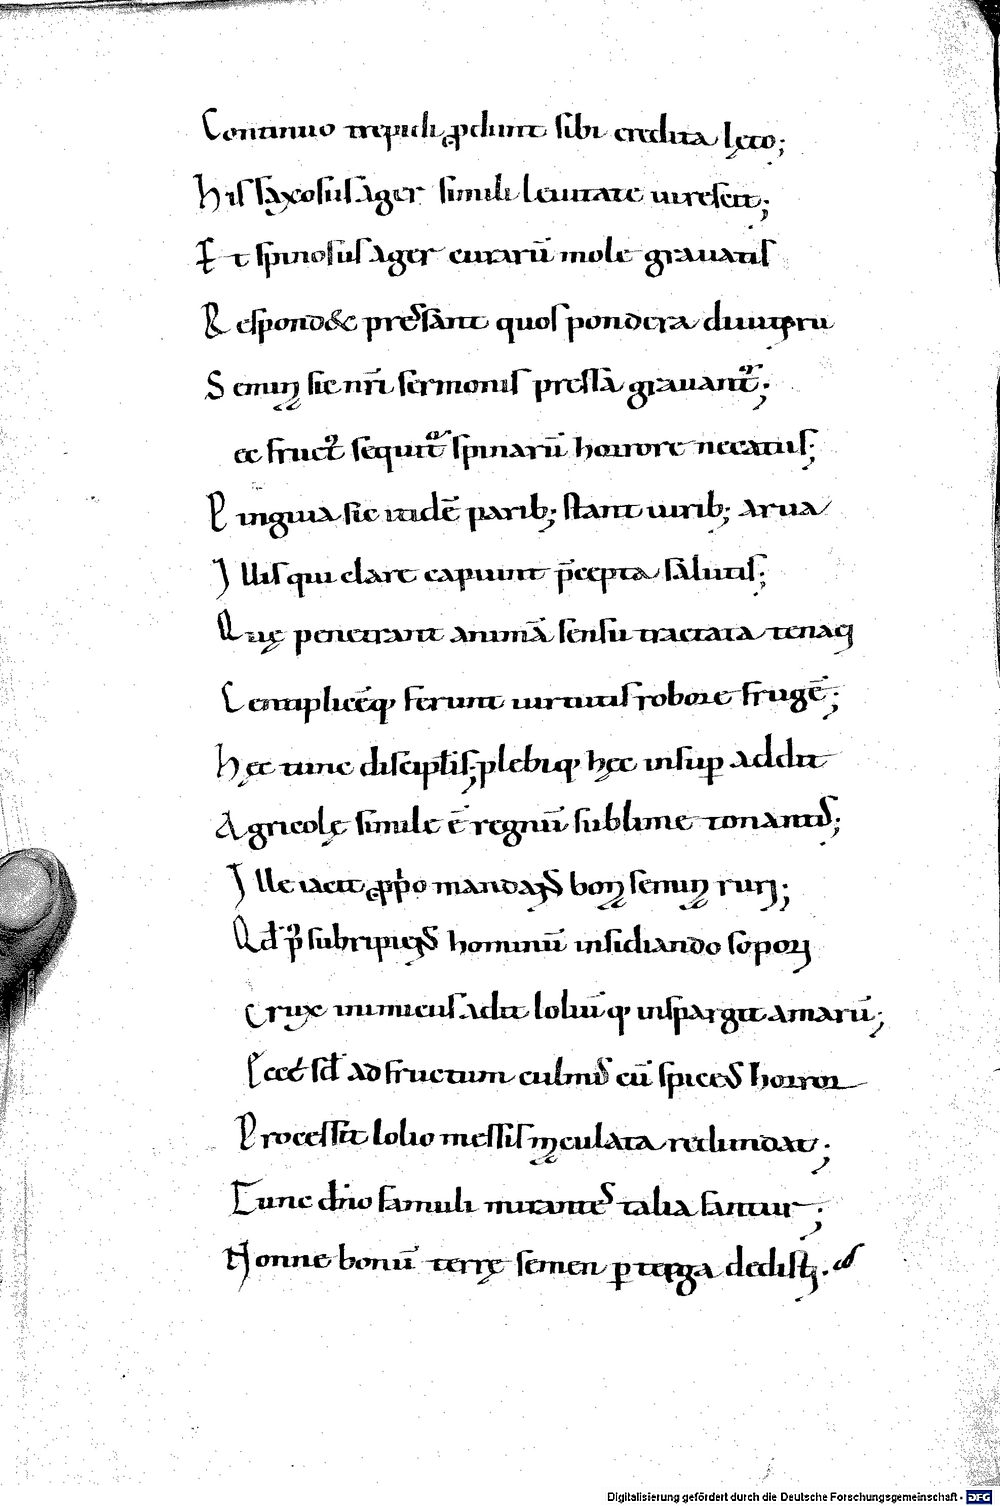 Continuo trepidi ꝓdunt sibi credita lęto;
His saxosus ager simili leuitate uirescit;
Et spinosus ager curarū mole grauatis
Respond& pressant quos pondera diuitiaru
Semina sic nr̄i sermonis pressa grauant̄;
ec fruct᷒ sequit̄ spinarū horrore necatus;
Pinguia sic itidē parib; stant uirib; arua
Illis qui clare capiunt p̄cepta salutis;
Quę penetrant animā sensu tractata tenaci
Centiplicēq ferunt uirtutis robore frugē;
Hęc tunc discipl̄is; plebiq hęc insuꝑ addit
Agricolę simile ē regnū sublime tonantis;
Ille iacit ꝓprio mandans bona semina ruri;
Qd̄ p̄ subripiens hominū insidiando sopori
Trux inimicus adit loliūq inspargit amarū;
Ecce sed̄ ad fructum culmus cū spiceus horror
Processit lolio messis maculata redundat;
Tunc dn̄o famuli mirantes talia fantur;
Nonne bonū terrę semen ꝑ terga dedisti.
Digitalisierung gefördert durch die Deutsche Forschungsgemeinschaft - DFG